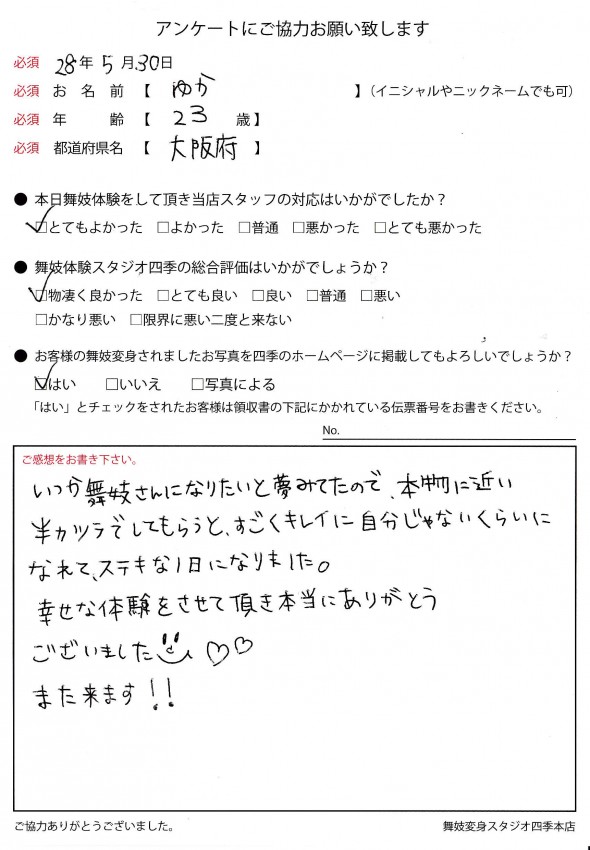 アンケートにご協力お願い致します
必須 28年5月.30日
必須 お名前【 ゆか 】（イニシャルやニックネームでも可）
必須 年齢【 23 歳】
必須 都道府県名【 大阪府 】
● 本日舞妓体験をして頂き当店スタッフの対応はいかがでしたか？
☑とてもよかった □よかった □普通 □悪かった □とても悪かった
● 舞妓体験スタジオ四季の総合評価はいかがでしょうか？
☑物凄く良かった □とても良い □良い □普通 □悪い
□かなり悪い □限界に悪い二度と来ない
● お客様の舞妓変身されましたお写真を四季のホームページに掲載してもよろしいでしょうか？
☑はい □いいえ □写真による
「はい」とチェックをされたお客様は領収書の下記にかかれている伝票番号をお書きください。
No.
ご感想をお書き下さい。
いつか舞妓さんになりたいと夢みてたので、本物に近い
半カツラでしてもらうと、すごくキレイに自分じゃないくらいに
なれて、ステキな1日になりました。
幸せな体験をさせて頂き本当にありがとう
ございました♡♡
また来ます!!
ご協力ありがとうございました。
舞妓変身スタジオ四季本店